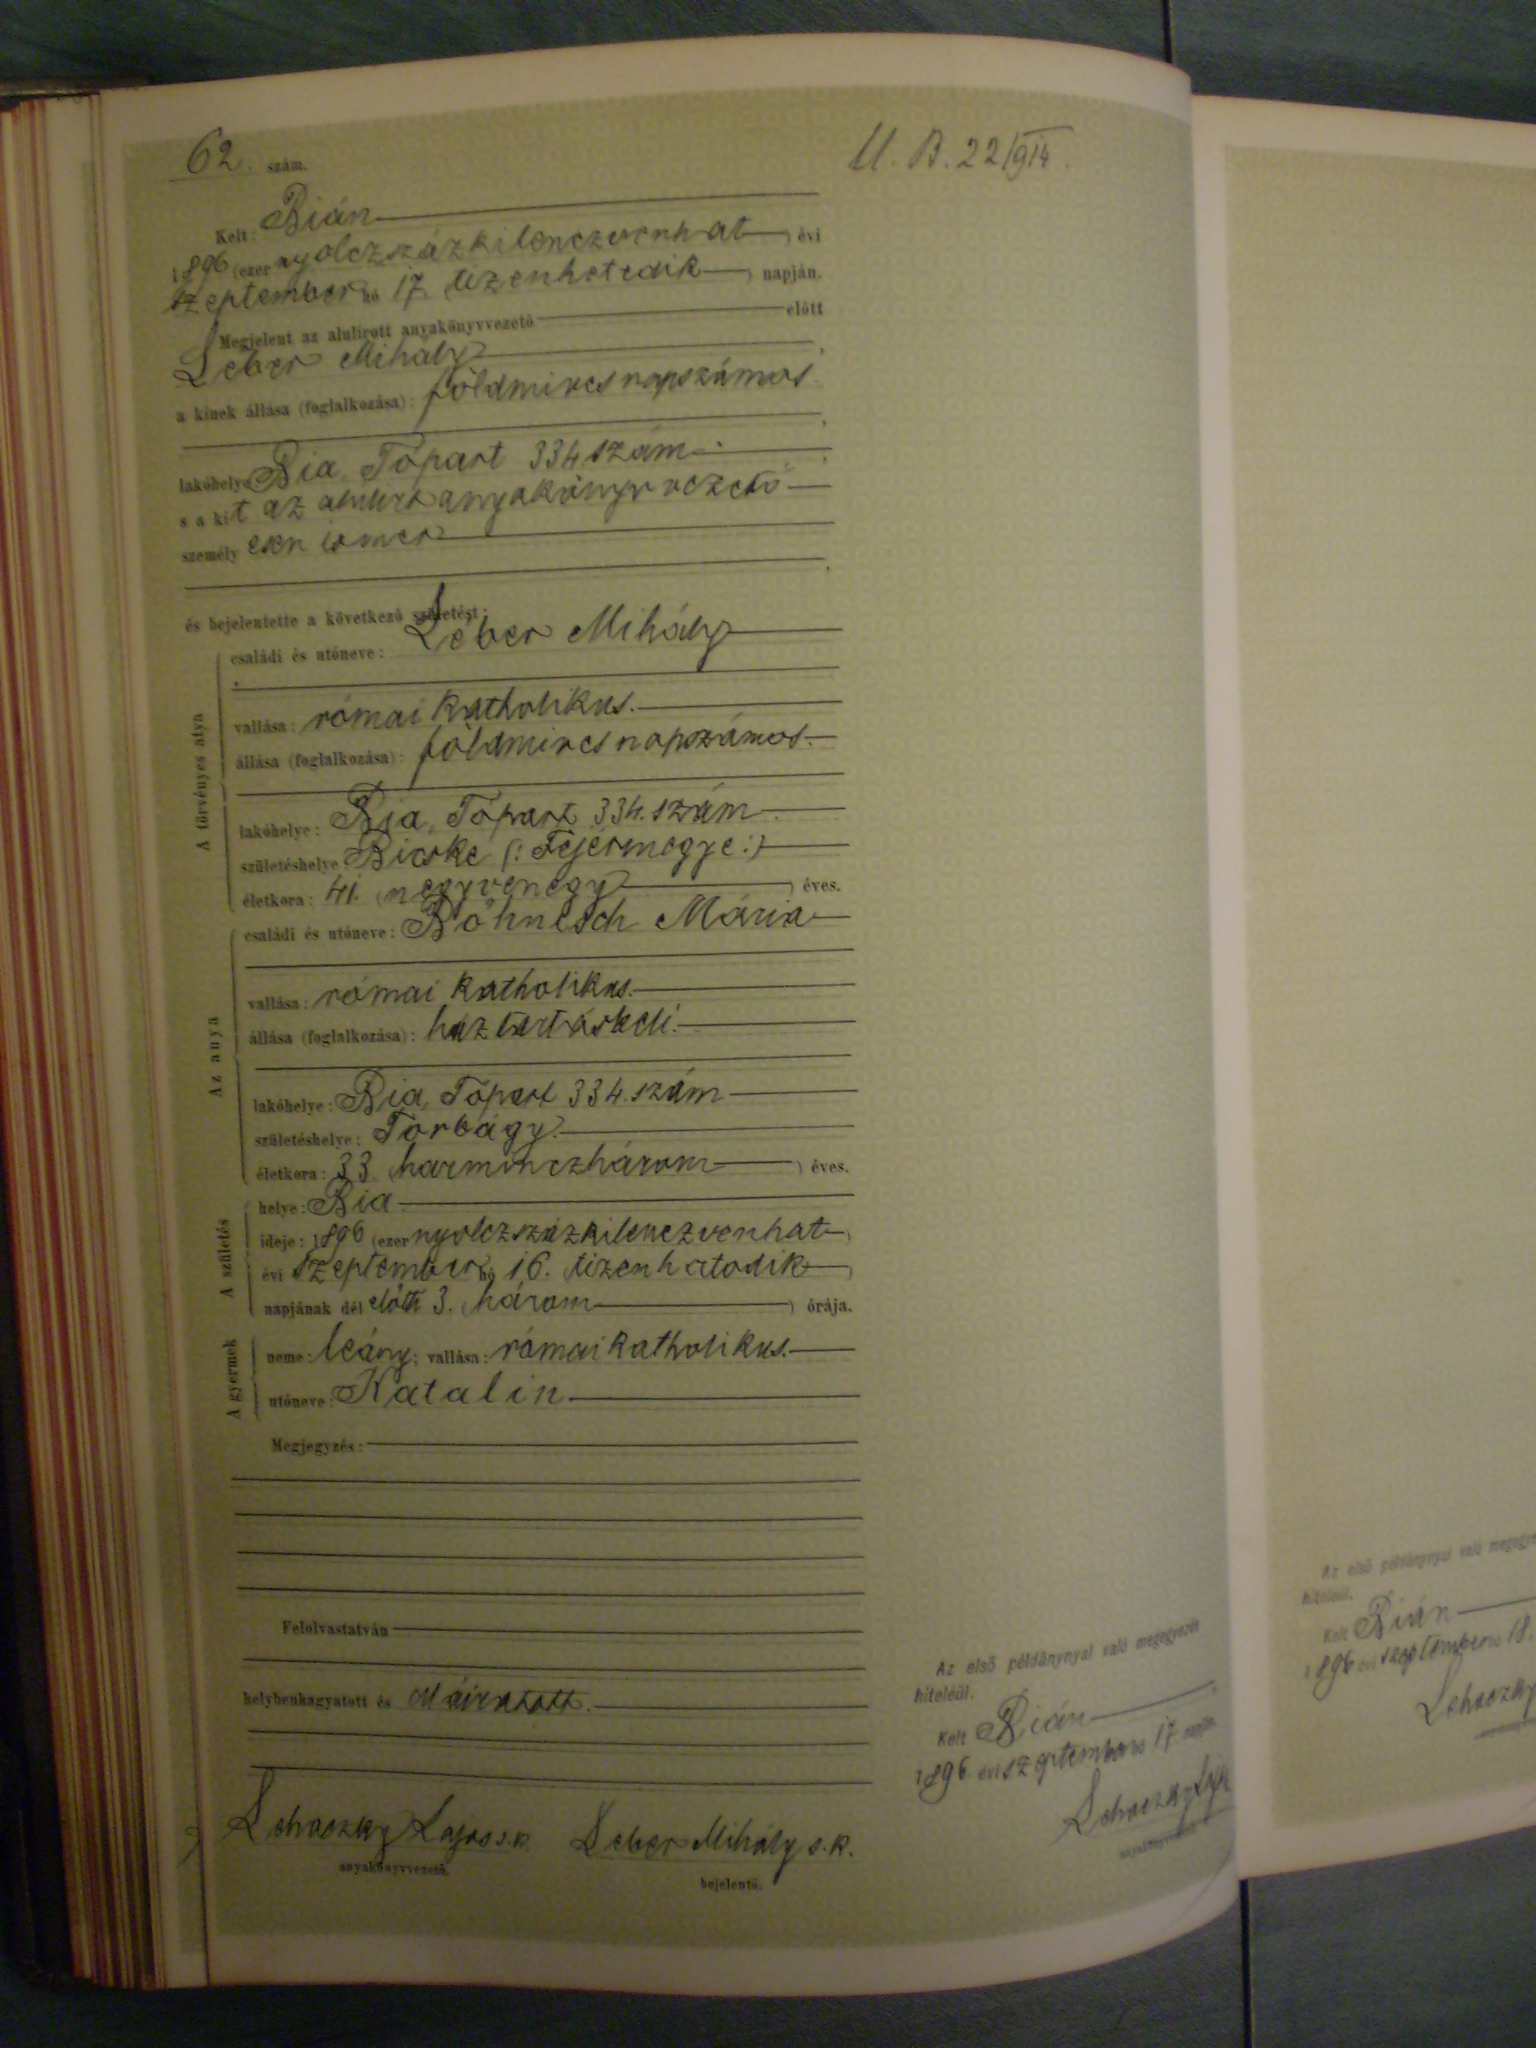 62. szám.
U. B. 22/914.
Kelt: Bián
1896 (ezer nyolczszázkilenczvenhat) évi
szeptember hó 17. (tizenhetedik) napján.
Megjelent az alulirott anyakönyvvezető előtt
Léber Mihály
a kinek állása (foglalkozása): földmíves napszámos
lakóhelye Bia, Tópart 334. szám.
s a kit az alulírt anyakönyvvezető
személy esen ismer
és bejelentette a következő születést:
A törvényes atya
családi és utóneve: Léber Mihály
vallása: római katholikus.
állása (foglalkozása): földmíves napszámos.
lakóhelye: Bia, Tópart 334. szám
születéshelye: Bicske (: Fejérmegye :)
életkora: 41. (negyvenegy) éves.
Az anya
családi és utóneve: Böhnisch Mária
vallása: római katholikus.
állása (foglalkozása): háztartásbeli.
lakóhelye: Bia, Tópart 334. szám
születéshelye: Torbágy.
életkora: 33 (harminczhárom) éves.
A születés
helye: Bia
ideje: 1896 (ezer nyolczszázkilenczvenhat)
évi szeptember hó 16. (tizenhatodik)
napjának dél előtti 3. (három) órája.
A gyermek
neme: leány; vallása: római katholikus.
utóneve: Katalin
Megjegyzés:
Felolvastatván
helybenhagyatott és aláiratott.
Lehoczky Lajos s.k. Léber Mihály s.k.
anyakönyvvezető. bejelentő.
Az első példánynyal való megegyezés
hiteléül.
Kelt Bián
1896 évi szeptember hó 17 napján.
Lehoczky
anyakönyvvezető
Az első példánynyal való
hiteléül.
Kelt Bián
1896 évi szeptember hó 18.
Lehoczky